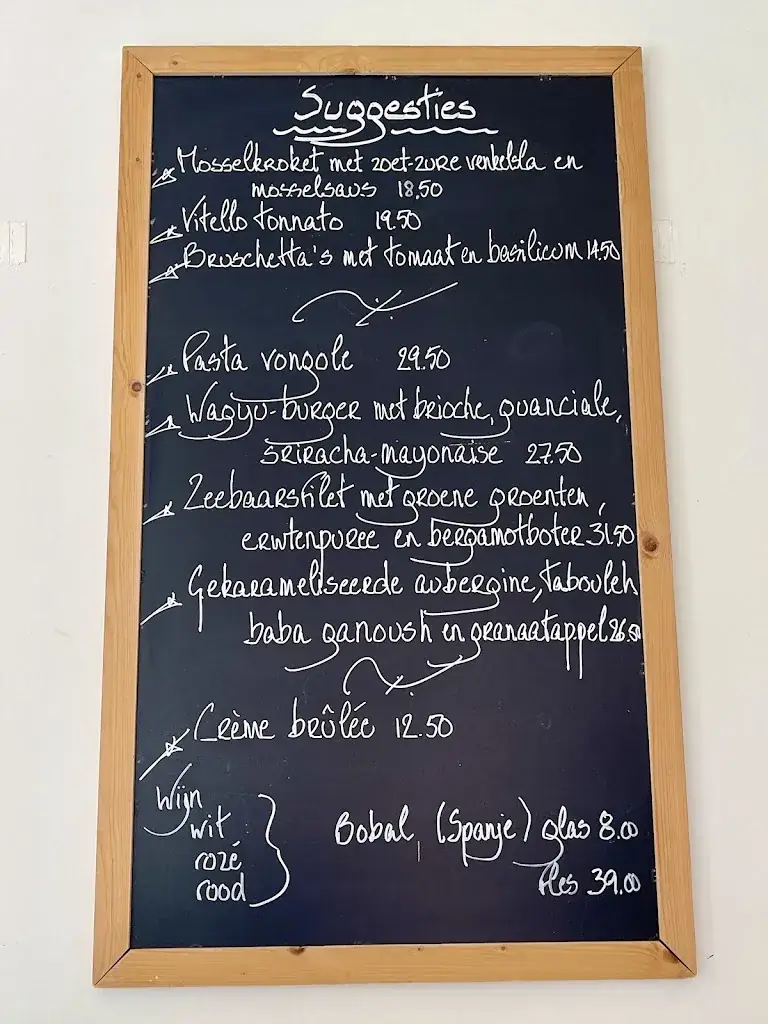 Suggesties
Mosselkroket met zoet-zure venkelsla en
mosselsaus 18,50
Vitello tonnato 19.50
Bruschetta's met tomaat en basilicum 14.50
Pasta vongole 29.50
Wagyu-burger met brioche, guanciale,
sriracha-mayonaise 27.50
Zeebaarsfilet met groene groenten,
erwtenpuree en bergamotboter 31.50
Gekarameliseerde aubergine, tabouleh
baba ganoush en granaatappel 26.50
Crème brûlée 12.50
Wijn
wit
rozé
rood
Bobal, (Spanje) glas 8.00
fles 39.00